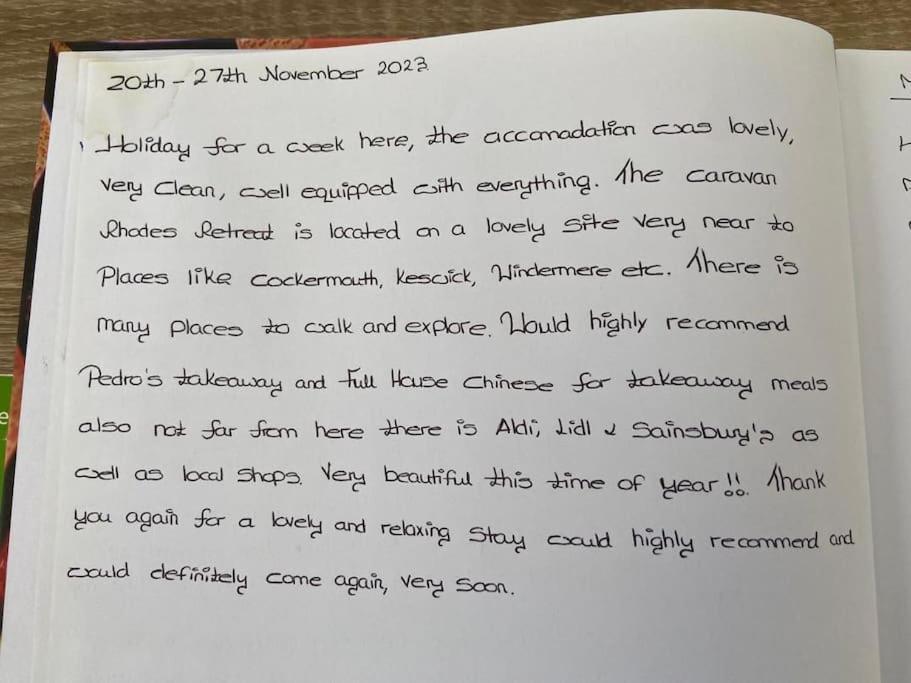 20th - 27th November 2023
Holiday for a week here, the accomadation was lovely,
very clean, well equipped with everything. The caravan
Rhodes Retreat is located on a lovely site very near to
Places like Cockermouth, Keswick, Windermere etc. There is
many places to walk and explore. Would highly recommend
Pedro's takeaway and Full House Chinese for takeaway meals
also not far from here there is Aldi, Lidl & Sainsbury's as
well as local shops. Very beautiful this time of year!! Thank
you again for a lovely and relaxing stay would highly recommend and
would definitely come again, very soon.